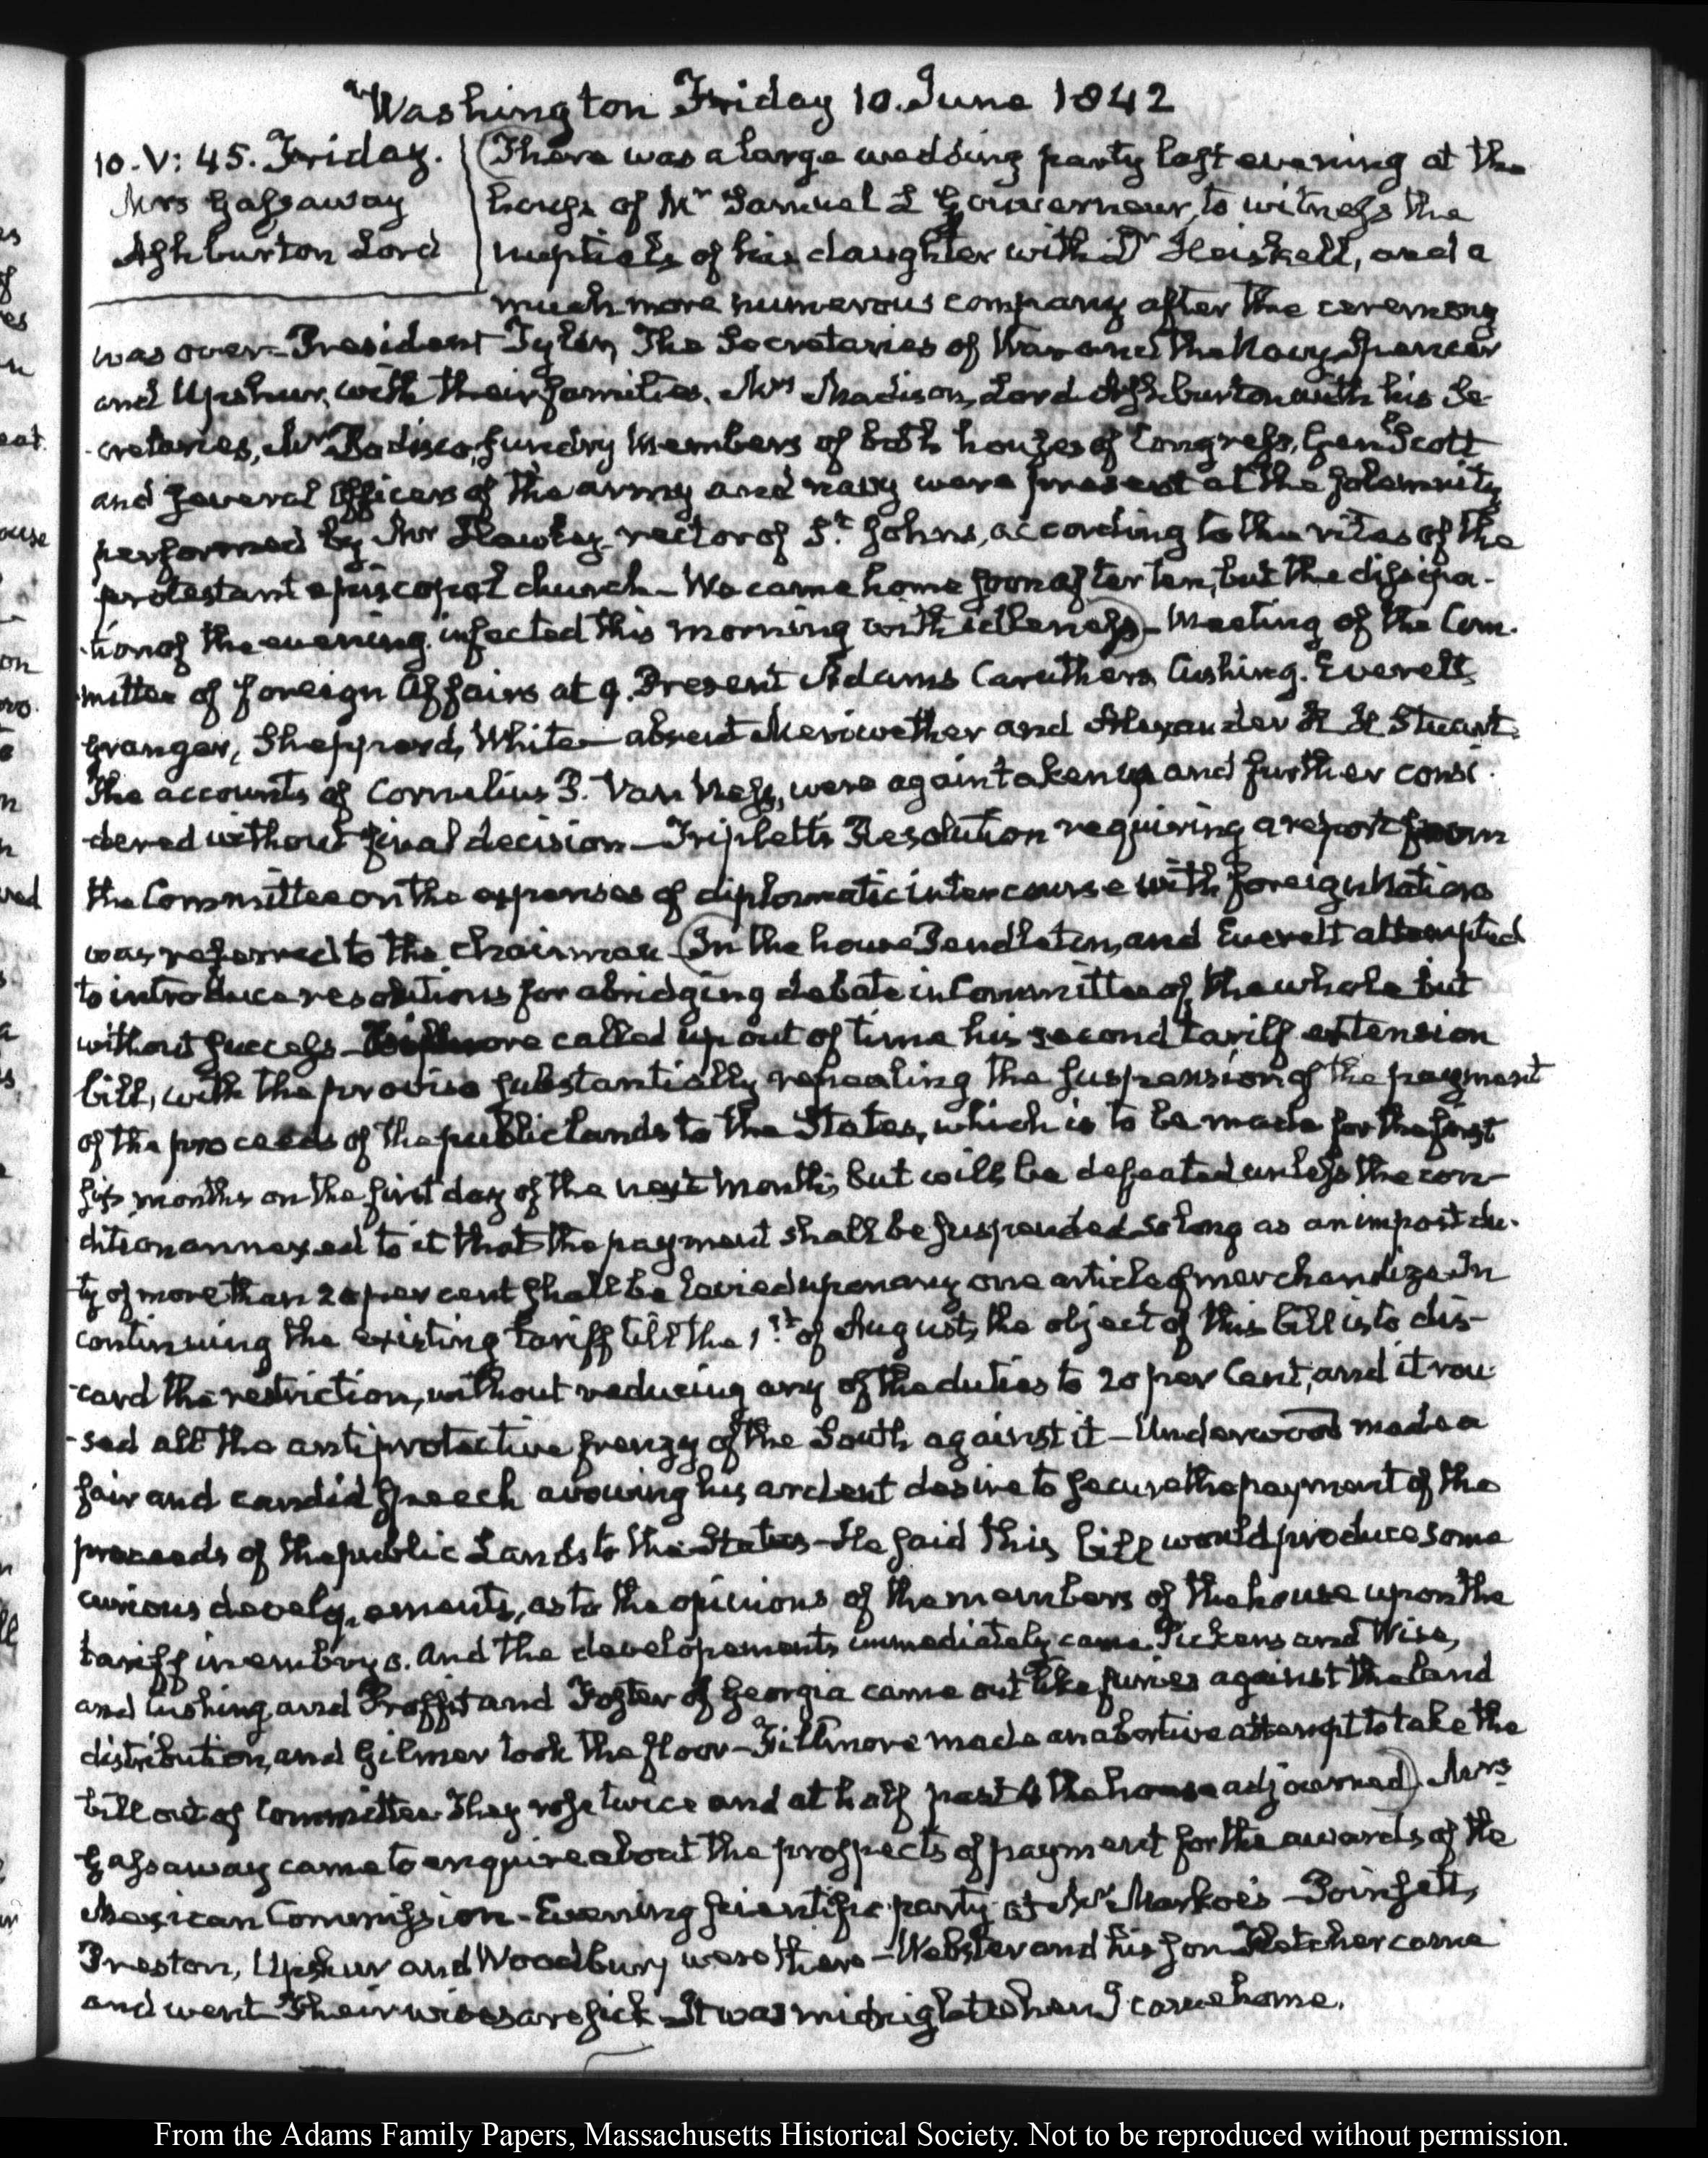 Washington Friday 10. June 1842
10. V: 45. Friday.
Mrs Gassaway
Ashburton Lord
There was a large wedding party last evening at the
house of Mr Samuel L Gouverneur, to witness the
nuptials of his daughter with Dr Heiskell, and a
much more numerous company after the ceremony
was over— President Tyler, The Secretaries of War and the Navy Spencer
and Upshur, with their families. Mrs Madison, Lord Ashburton with his Se-
-cretaries, Mr Bodisco, sundry Members of both houses of Congress, Genl Scott
and several Officers of the army and navy were present at the solemnity
performed by Mr Hawley rector of St. Johns, according to the rites of the
protestant episcopal church— We came home soon after ten, but the dissipa-
-tion of the evening infected this morning with idleness)— Meeting of the Com-
-mittee of foreign Affairs at 9. Present Adams Caruthers Cushing. Everett,
Granger, Shepperd, White— absent Meriwether and Alexander H H Stuart.
The accounts of Cornelius P. Van Ness, were again taken up and further consi-
-dered without final decision— Triplett's Resolution requiring a report from
the Committee on the expenses of diplomatic intercourse with foreign Nations
was referred to the chairman— (In the house Pendleton, and Everett attempted
to introduce resolutions for abridging debate in Committee of the whole but
without success— Fillmore called up out of time his second tariff extension
bill, with the proviso substantially repealing the suspension of the payment
of the proceeds of the public lands to the States, which is to be made for the first
six months on the first day of the next month; but will be defeated unless the con-
dition annexed to it that the payment shall be suspended so long as an impost du-
ty of more than 20 per cent shall be levied upon any one article of merchandize In
continuing the existing tariff till the 1st of August, the object of this bill is to dis-
-card the restriction, without reducing any of the duties to 20 per Cent, and it rou-
-sed all the anti protective frenzy of the South against it— Underwood made a
fair and candid speech avowing his ardent desire to secure the payment of the
proceeds of the public Lands to the States— He said this bill would produce some
curious developements, as to the opinions of the members of the house upon the
tariff in embryo. And the developements immediately came. Pickens and Wise,
and Cushing, and Proffit and Foster of Georgia came out like furies against the land
distribution, and Gilmer took the floor— Fillmore made an abortive attempt to take the
bill out of Committee They rose twice and at half past 4 the house adjourned) Mrs
Gassaway came to enquire about the prospects of payment for the awards of the
Mexican Commission— Evening scientific party at Mr Markoe's— Poinsett,
Preston, Upshur and Woodbury were there— Webster and his son Fletcher came
and went Their wives are sick— It was midnight when I came home.
From the Adams Family Papers, Massachusetts Historical Society. Not to be reproduced without permission.